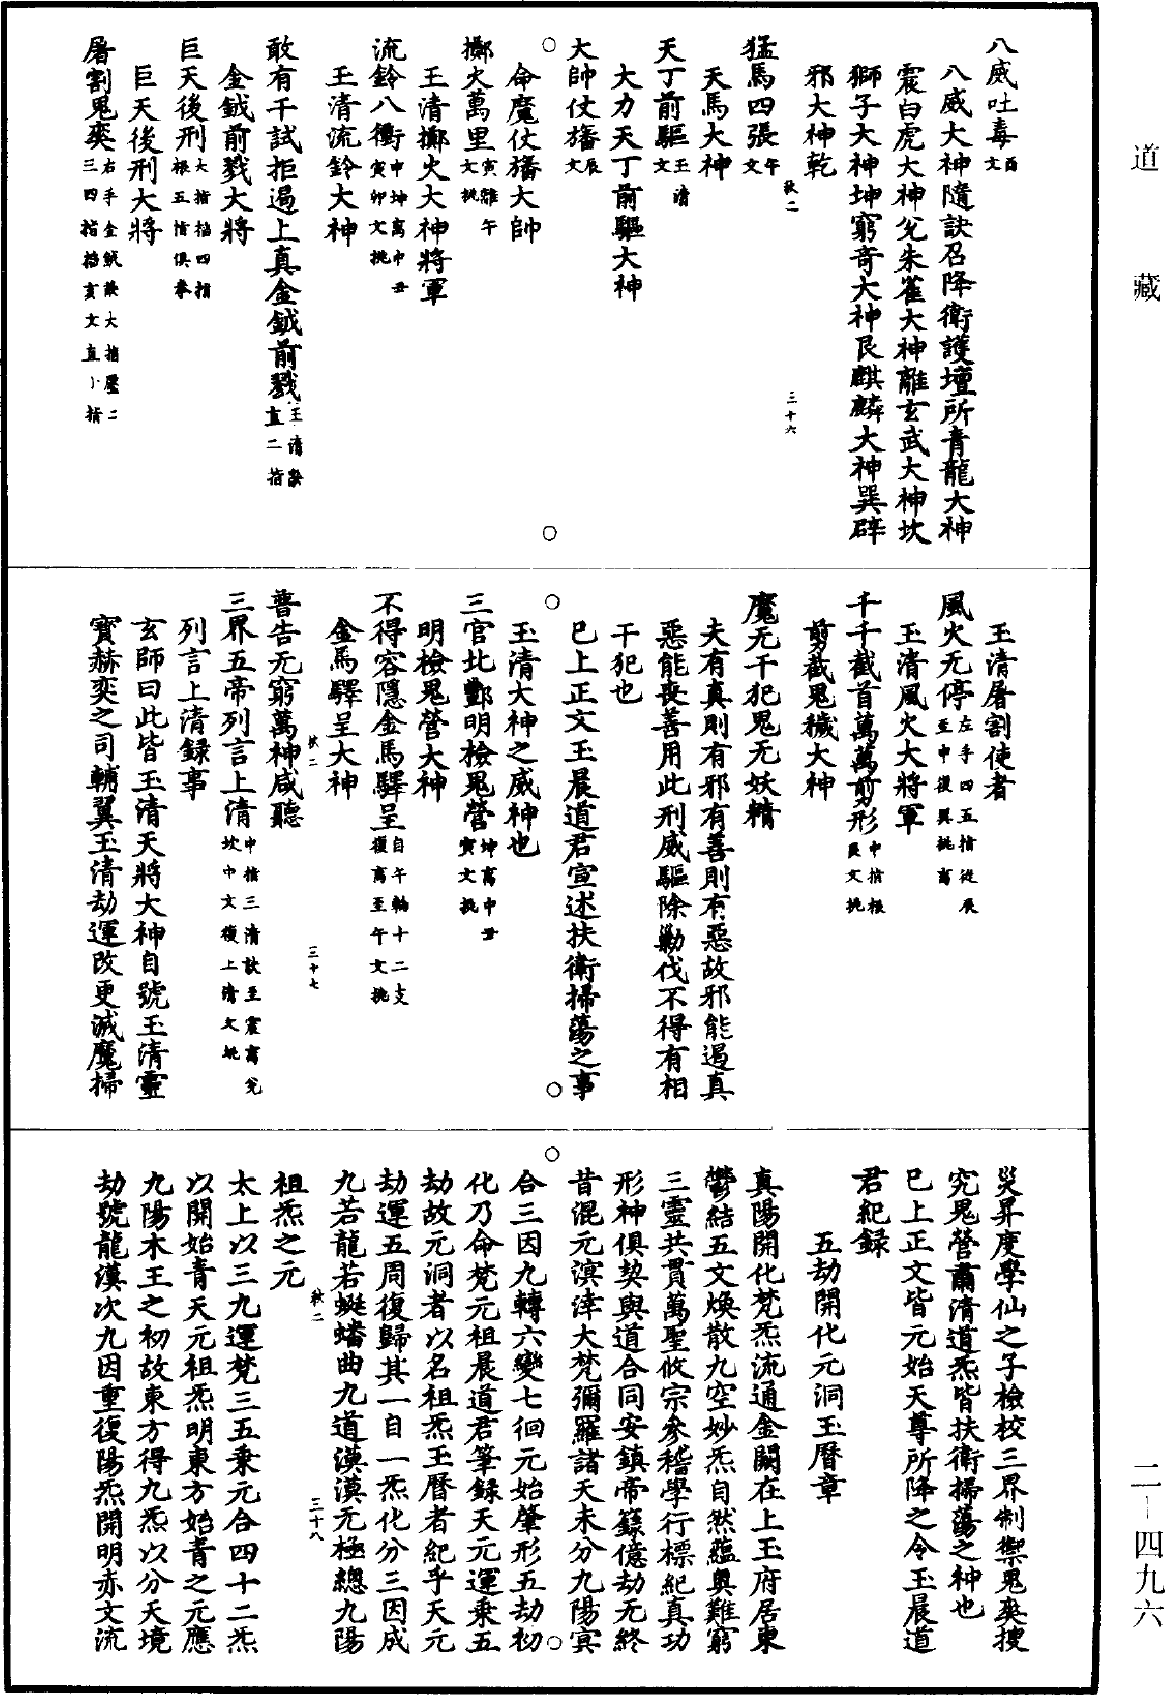 道藏
八威吐毒酉文
八威大神隨訣召降衛護壇所青龍大神
震白虎大神兊朱雀大神離玄武大神坎
獅子大神坤窮奇大神艮麒麟大神巽辟
邪大神乾
猛馬四張午文
天馬大神
天丁前驅玉清文
大力天丁前驅大神
大帥仗旛辰文
命魔仗旛大帥
擲火萬里寅離午文挑
玉清擲火大神將軍
流鈴八衝申坤离中丑寅卯文挑
玉清流鈴大神
敢有干試拒遏上真金鉞前戮玉清訣直二指
金鉞前戮大將
巨天後刑大指掐四指根五指俱拳
巨天後刑大將
屠割鬼爽右手金鉞訣大指壓二三四指掐亥文直小指
三十六
玉清屠割使者
風火无停左手四五指從辰至申復巽挑离
玉清風火大將軍
千千截首萬萬剪形中指根艮文挑
剪截鬼穢大神
魔无干犯鬼无妖精
夫有真則有邪有善則有惡故邪能遏真
惡能喪善用此刑威驅除勦伐不得有相
干犯也
巳上正文玉晨道君宣述扶衛掃蕩之事
玉清大神之威神也
三官北酆明檢鬼營坤离中丑寅文挑
明檢鬼營大神
不得容隱金馬驛呈自午輪十二支復离至午文挑
金馬驛呈大神
普告无窮萬神咸聽
三界五帝列言上清中指三清訣至震离兊坎中文復上清文挑
列言上清録事
三十七
玄師曰此皆玉清天將大神自號玉清靈
寶赫奕之司輔翼玉清劫運改更滅魔掃
災昇度學仙之子檢校三界制禦鬼爽搜
究鬼營肅清道炁皆扶衛掃蕩之神也
巳上正文皆元始天尊所降之令玉晨道
君紀録
五劫開化元洞玉曆章
真陽開化梵炁流通金闕在上玉府居東
鬱結五文煥散九空妙炁自然蘊奥難窮
三靈共貫萬聖攸宗參稽學行標紀真功
形神俱契與道合同安鎮帝籙億劫无終
昔混元溟涬大梵彌羅諸天未分九陽㝠
合三因九轉六變七徊元始肇形五劫初
化乃命梵元祖晨道君筆録天元運乗五
劫故元洞者以名祖炁玉曆者紀乎天元
劫運五周復歸其一自一炁化分三因成
九若龍若蜒蟠曲九道漠漠无極總九陽
祖炁之元
三十八
太上以三九運梵三五乗元合四十二炁
以開始青天元祖炁明東方始青之元應
九陽木王之初故東方得九炁以分天境
劫號龍漢次九因重復陽炁開明赤文流
二-四九六